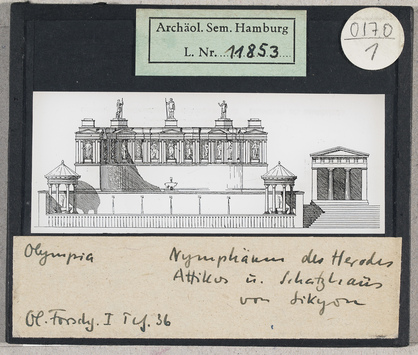 Archäol. Sem. Hamburg
L. Nr. 11853
0170
1
Olympia
Nymphäum des Herodes
Attikos u. Schatzhaus
von Sikyon
Ol. Forschg. I Tef. 36